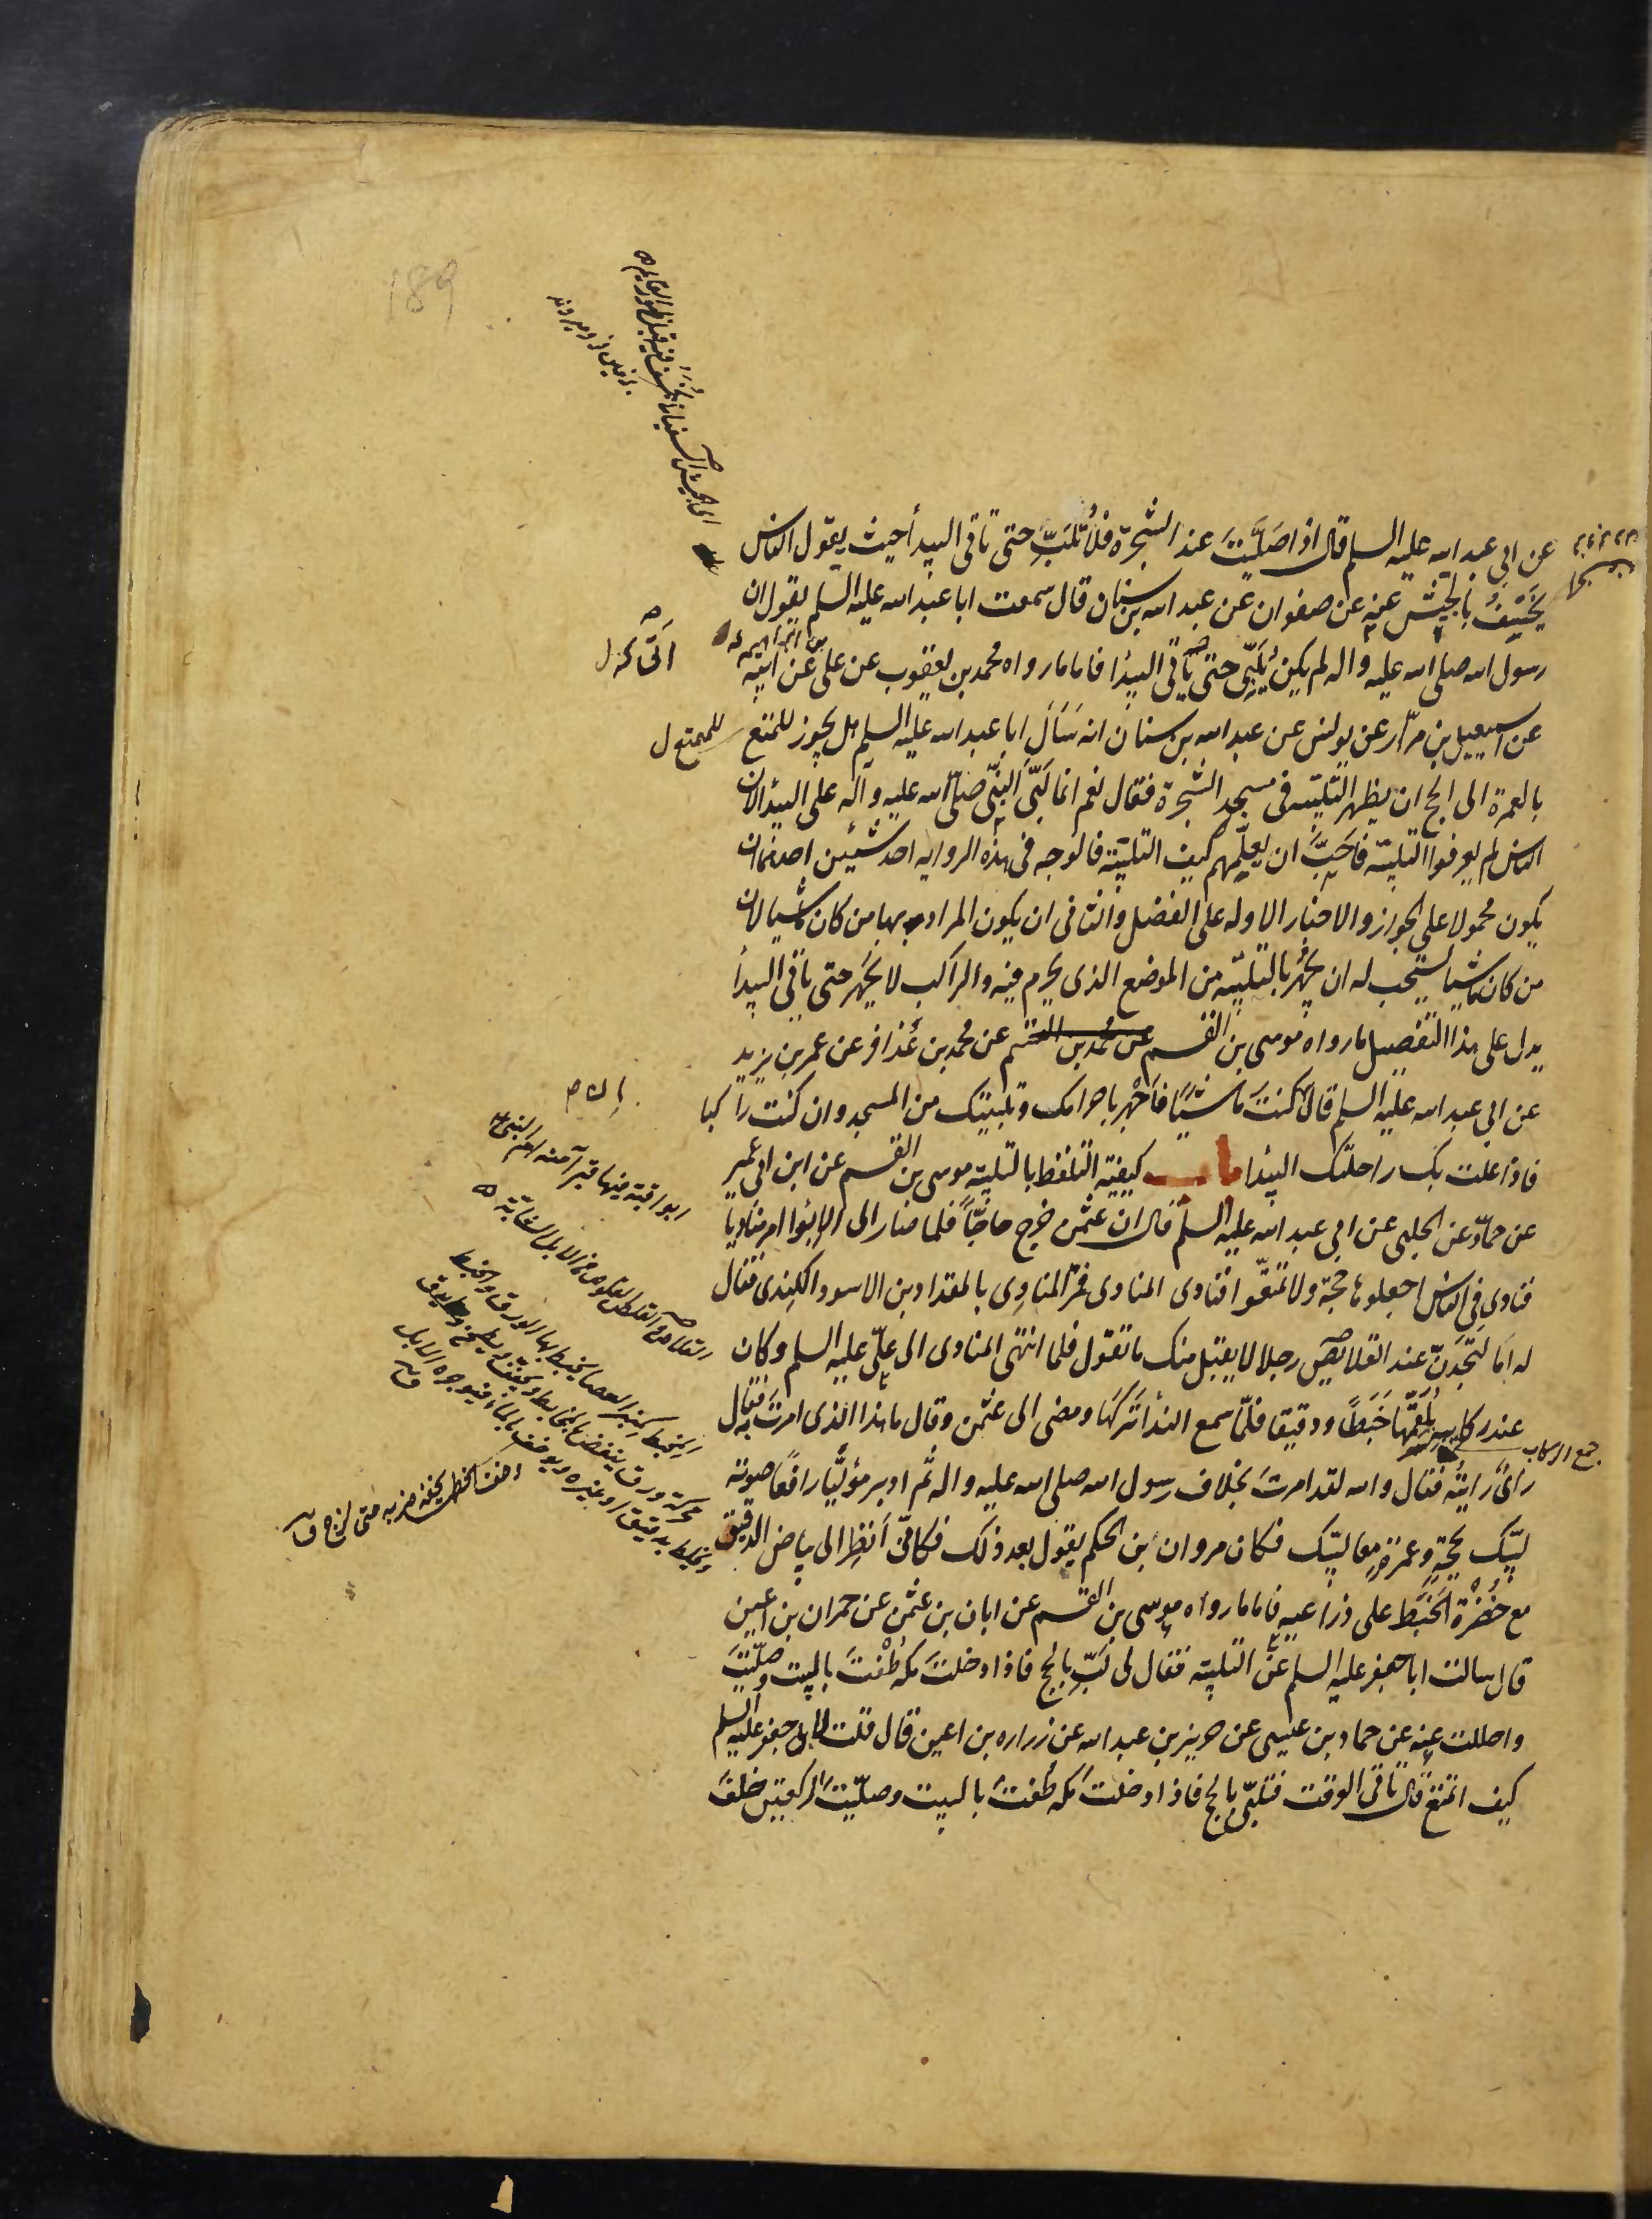 189
عن ابى عبد الله عليه السلم قال اذا صَلَّيتَ عند الشجرة فلا تُلَبِّ حتى تأتى البيدأ حيث يقول الناس
يُخسَف بالجيش عنه عن صفوان عن عبد الله بن سنان قال سمعت ابا عبد الله عليه السلم يقول ان
رسول الله صلى الله عليه واله لم يكن يُلَبِّى حتى يأتى البيدأ فاما ما رواه محمد بن يعقوب عن على عن ابيه
بن ابراهيم
عن اسمعيل بن مرّار عن يونس عن عبد الله بن سنان انه سَأَلَ ابا عبد الله عليه السلم هل يجوز للمتمتع
للمتمتع ل
بالعمرة الى الحج ان يظهر التلبية فى مسجد الشجرة فقال نعم انما لَبَّى النبّى صلّى الله عليه وآله على البيدأ لان
الناس لم يعرفوا التلبية فاَحَبَّ ان يعلّمهم كيف التلبية فالوجه فى هذه الرواية احد شيئين احدهما ان
يكون محمولا على الجواز والاخبار الاولة على الفضل والثانى ان يكون المراد بها من كان ماشيا لان
من كان ماشيا يستحب له ان يجهر بالتلبية من الموضع الذى يحرم فيه والراكب لا يجهر حتى يأتى البيدأ
يدل على هذا التفصيل ما رواه موسى بن القسم عن محمد بن القسم عن محمد بن عُذافر عن عمر بن يزيد
عن ابى عبد الله عليه السلم قال ان كنتَ ماشيًا فاَجْهر باحرامك وتلبيتك من المسجد وان كنت راكبا
فاذا علت بك راحلتك البيدأ باب كيفية التلفظ بالتلبية موسى بن القسم عن ابن ابى عمير
عن حمّاد عن الحلبى عن ابى عبد الله عليه السلم قال ان عثمن خرج حاجًّا فلما صار الى الابوأ امر مناديا
فنادى فى الناس اجعلوها حجة ولا تمتعّوا فنادى المنادى فمرّ المنادِى بالمقداد بن الاسود الكِندى فقال
له اَما لَتَجِدَنّ عند القلائص رجلا لا يقبل منك ما تقول فلما انتهى المنادى الى علىّ عليه السلم وكان
عند ركايبه يُلقمُها خَبَطًا ودقيقا فلمّا سمع الندأ تَرَكَها ومضى الى عثمن وقال ما هذا الذى امرتَ به فقال
جمع الركاب
رأىٌ رايتُه فقال والله لقد امرتَ بخلاف رسول الله صلى الله عليه واله ثم ادبر مُوَلِّيًا رافعًا صوته
لبّيك بحجّةٍ وعمرةٍ معا لبّيك فكان مروان بن الحكم يقول بعد ذلك فكانّى اَنظر الى بياض الدقيق
مع خُضْرَة الخَبَط على ذراعيه فاما ما رواه موسى بن القسم عن ابان بن عثمن عن حمران بن اعين
قال سالت ابا جعفر عليه السلم عن التلبية فقال لى لَبِّ بالحج فاذا دخلت مكة طُفْتَ بالبيت وصلّيتَ
واحللت عنه عن حماد بن عيسى عن حريز بن عبد الله عن زراره بن اعين قال قلت لابى جعفر عليه السلم
كيف اتمتع قال تأتى الوقت فتلبّى بالحج فاذا دخلتَ مكة طُفتَ بالبيت وصلّيتَ الركعتين خلفَ
ابوا قرية فيها قبر آمنة ام النبى
القلايص
المخبط كمنبر العصا يخبط بها الورق والخبط
محركة ورق ينفض بالمخابط ويجفف ويطحن
ويخلط بدقيق او غيره ويوخف بالماء فيوجره الابل
ق
اوخف الخطمى